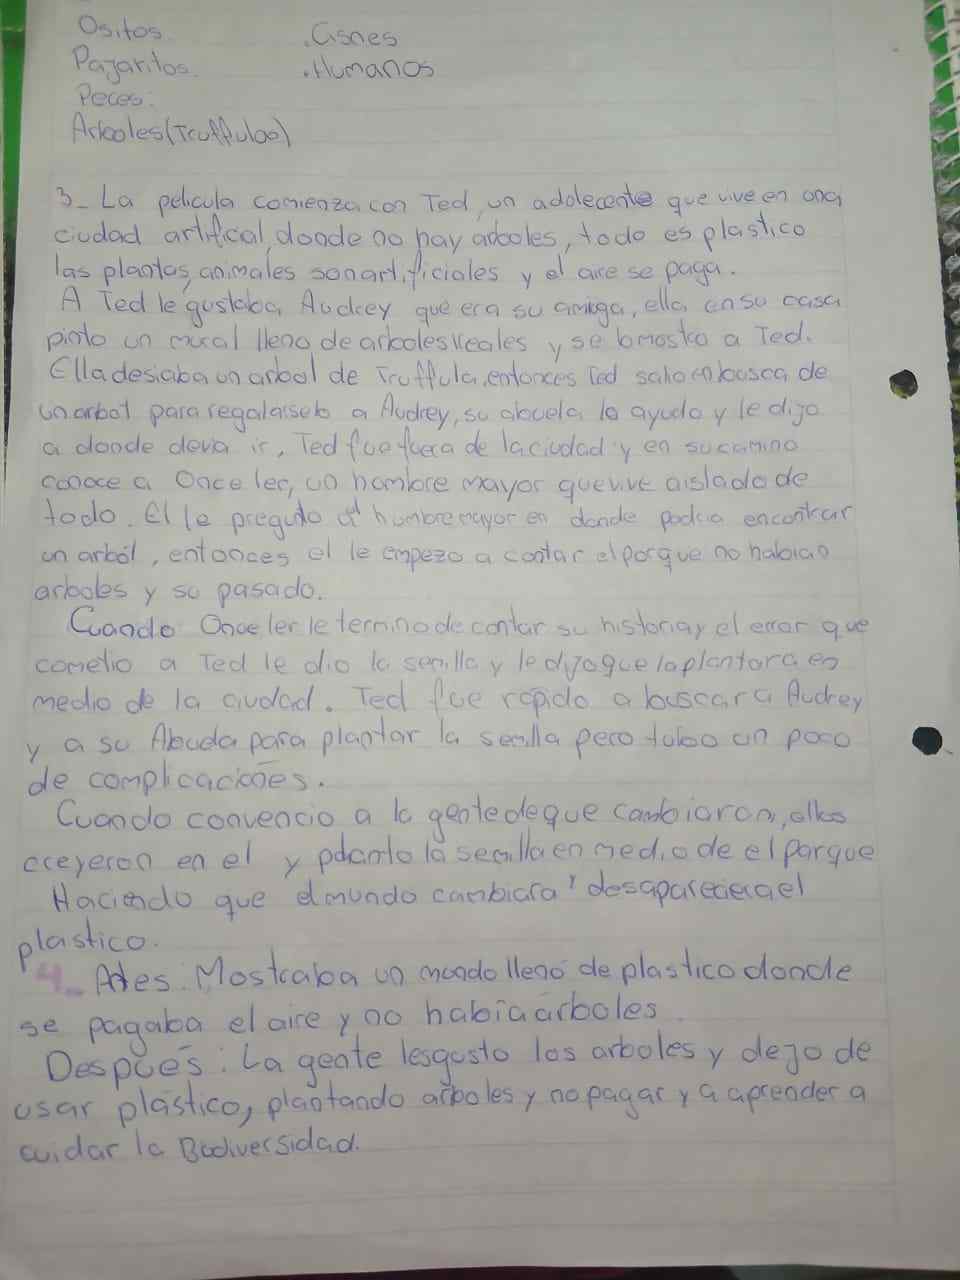 Ositos. .Cisnes
Pajaritos. .Humanos
Peces.
Arboles(Truffulas)
3_ La pelicula comienza con Ted, un adolecente que vive en una
ciudad artifical, donde no hay arboles, todo es plastico
las plantas, animales son artificiales y el aire se paga.
A Ted le gustaba Audrey que era su amiga, ella en su casa
pinto un mural lleno de arboles reales y se lo mostro a Ted.
Ella desiaba un arbol de Truffula, entonces Ted salio en busca de
un arbol para regalarselo a Audrey, su abuela lo ayudo y le dijo
a donde devia ir, Ted fue fuera de la ciudad y en su camino
conoce a Once ler, un hombre mayor que vive aislado de
todo. El le pregunto al hombre mayor en donde podria encontrar
un arból, entonces el le empezo a contar el porque no habian
arboles y su pasado.
Cuando Once ler le termino de contar su historia y el error que
cometio a Ted le dio la semilla y le dijo que la plantara en
medio de la ciudad. Ted fue rapido a buscar a Audrey
y a su Abuela para plantar la semilla pero tubo un poco
de complicaciones.
Cuando convencio a la gente de que cambiaron, ellos
creyeron en el y planto la semilla en medio de el parque
Haciendo que el mundo cambiara y desapareciera el
plastico.
4_ Antes: Mostraba un mundo lleno de plastico donde
se pagaba el aire y no había árboles.
Despúes: La gente les gusto los arboles y dejo de
usar plástico, plantando arboles y no pagar y a aprender a
cuidar la Biodiversidad.